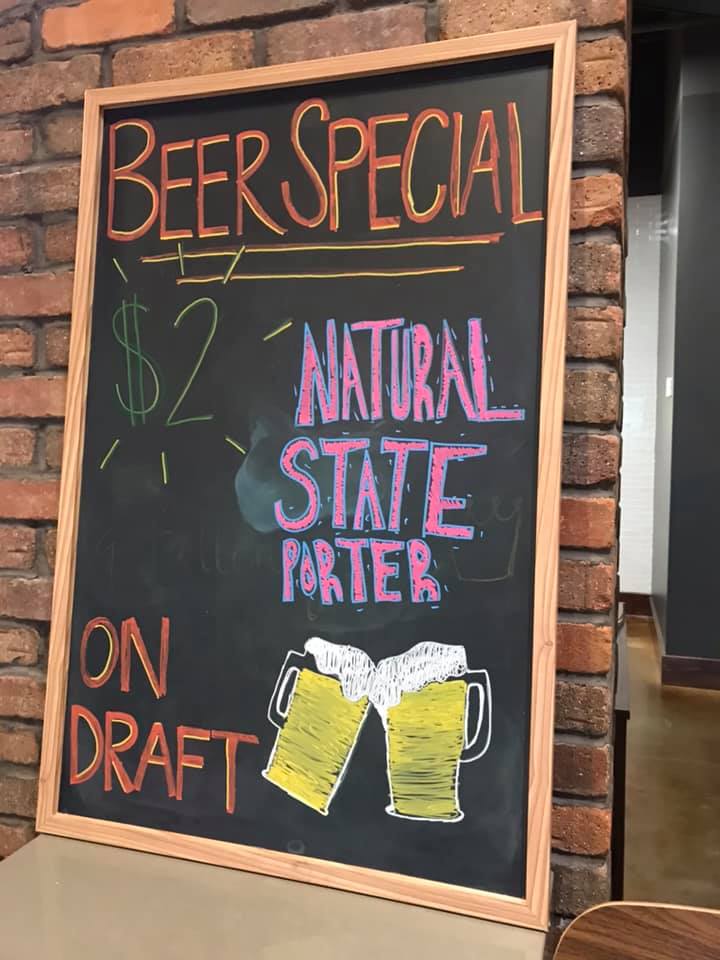 BEER SPECIAL
$2
NATURAL
STATE
PORTER
ON
DRAFT